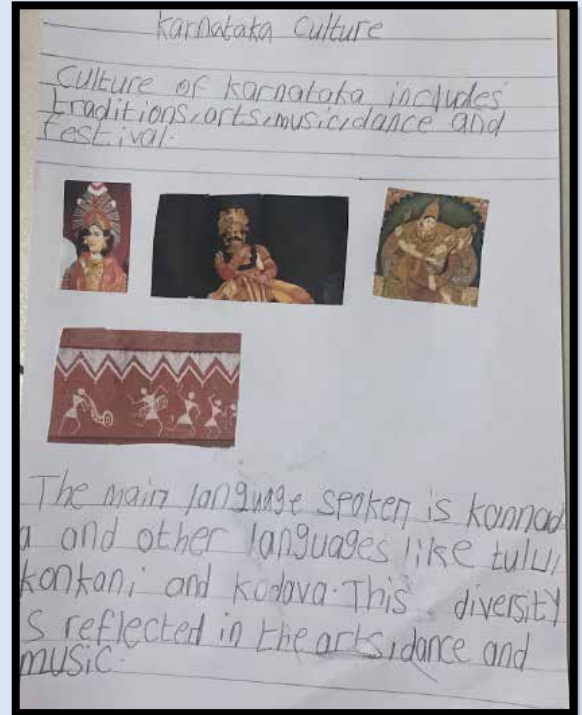 Karnataka Culture
Culture of karnataka includes
traditions,arts,music,dance and
festival.
The main language spoken is kannad
a and other languages like tulu,
konkani and kodava. This diversity
s reflected in the arts,dance and
music.